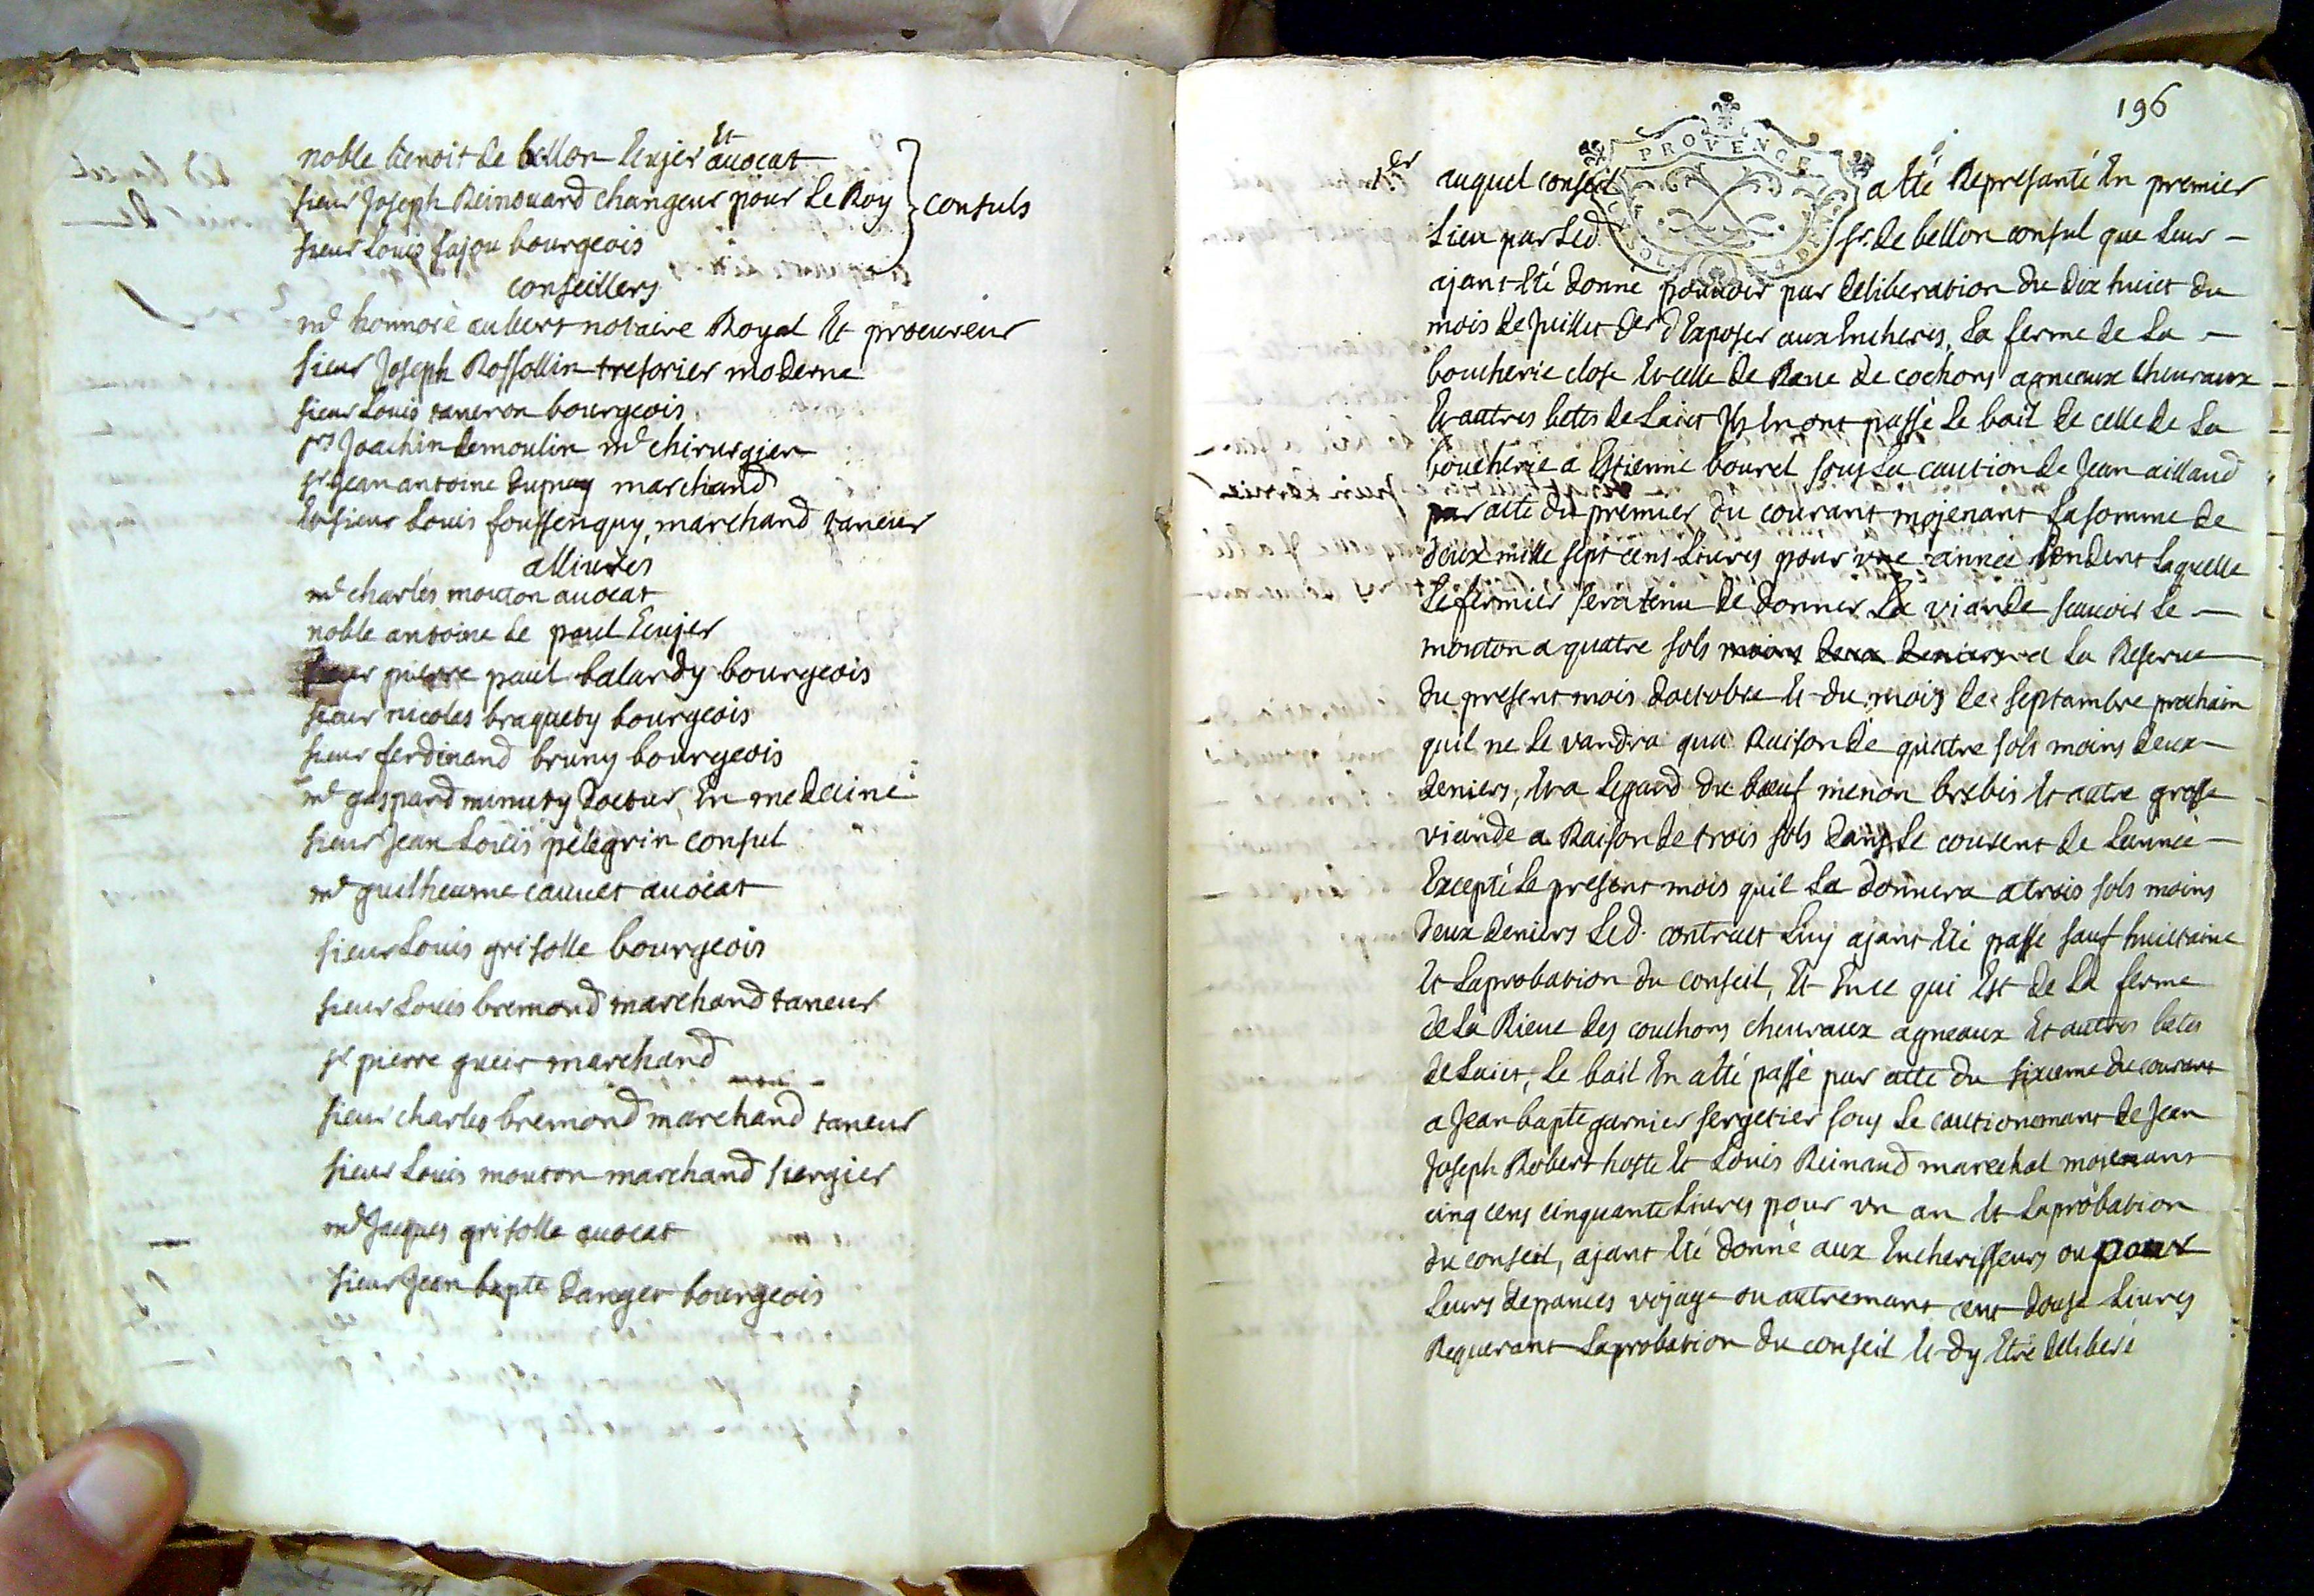 noble benoit de bellon Ecujer Et auocat
sieur Joseph Reinouard changeur pour Le Roy
sieur Louis fajou bourgeois
consuls
conseillers
mᵉ honnoré aubert notaire Royal Et procureur
sieur Joseph Rossollin tresorier moderne
sieur Louis taneron bourgeois
sʳˢ Joachin demoulin mᵉ chirurgien
sʳ Jean antoine dupuy marchand
Et sieur Louis foussenquy, marchand taneur
alliurés
mᵉ charles mouton auocat
noble antoine de paul Ecujer
sieur pierre paul balardy bourgeois
sieur nicolas braquety bourgeois
sieur ferdinand bruny bourgeois
mᵉ gaspard minuty docteur En medecine
sieur Jean Louis pelegrin consul
mᵉ guilheaume cauuet auocat
sieur Louis grisolle bourgeois
sieur Louis bremond marchand taneur
sʳ pierre gueit marchand
sieur charles bremond marchand taneur
sieur Louis mouton marchand sergier
mᵉ Jacques grisolle auocat
sieur Jean bapte danger bourgeois
196
PROVENCE
SOL 4 DE
1ᵉʳ
auquel conseil a Eté Representé En premier
Lieu par Led. sʳ. de bellon consul que Leur
ajant Eté donné pouuoir par deliberation du dix huict du
mois de Juillet deʳ d'Exposer aux Encheres, La ferme de La
boucherie close Et celle de Reue de cochons agneaux cheuraux
Et autres betes de Laict Jls En ont passé Le bail de celle de La
boucherie a Estienne bouret sous La caution de Jean aillaud
par acte du premier du courant mojenant La somme de
deux mille sept cens Liures pour vne année Pendent Laquelle
Le fermier sera tenu de donner La viande scauoir Le
mouton a quatre sols moins deux deniers a La Reserue
du present mois doctobre Et du mois de septambre prochain
quil ne Le vandra qua Raison de quatre sols moins deux
deniers, Et a Legard du bœuf menon brebis Et autre grosse
viande a Raison de trois sols dans Le courent de Lannée
Excepté Le present mois quil La donnera a trois sols moins
deux deniers Led. contract Luy ajant Eté passé sauf huictaine
Et Laprobation du conseil, Et En ce qui Est de La ferme
de La Rieue des couchons cheuraux agneaux Et autres betes
de Laict, Le bail En a Eté passé par acte du sixieme du courant
a Jean bapte garnier sergetier sous Le cautionemant de Jean
Joseph Robert hoste Et Louis Reinaud marechal mojenant
cinq cens cinquante Liures pour vn an Et Laprobation
du conseil, ajant Eté donné aux Encherisseurs ou pour
Leurs depances vojage ou autremant cent douse Liures
Requerant Laprobation du conseil Et dy Etre deliberé